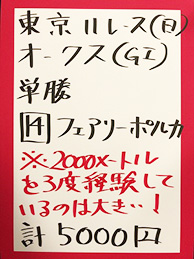 東京11レース(日)
オークス(GⅠ)
単勝
14 フェアリーポルカ
※2000メートル
を3度経験して
いるのは大きい!
計5000円